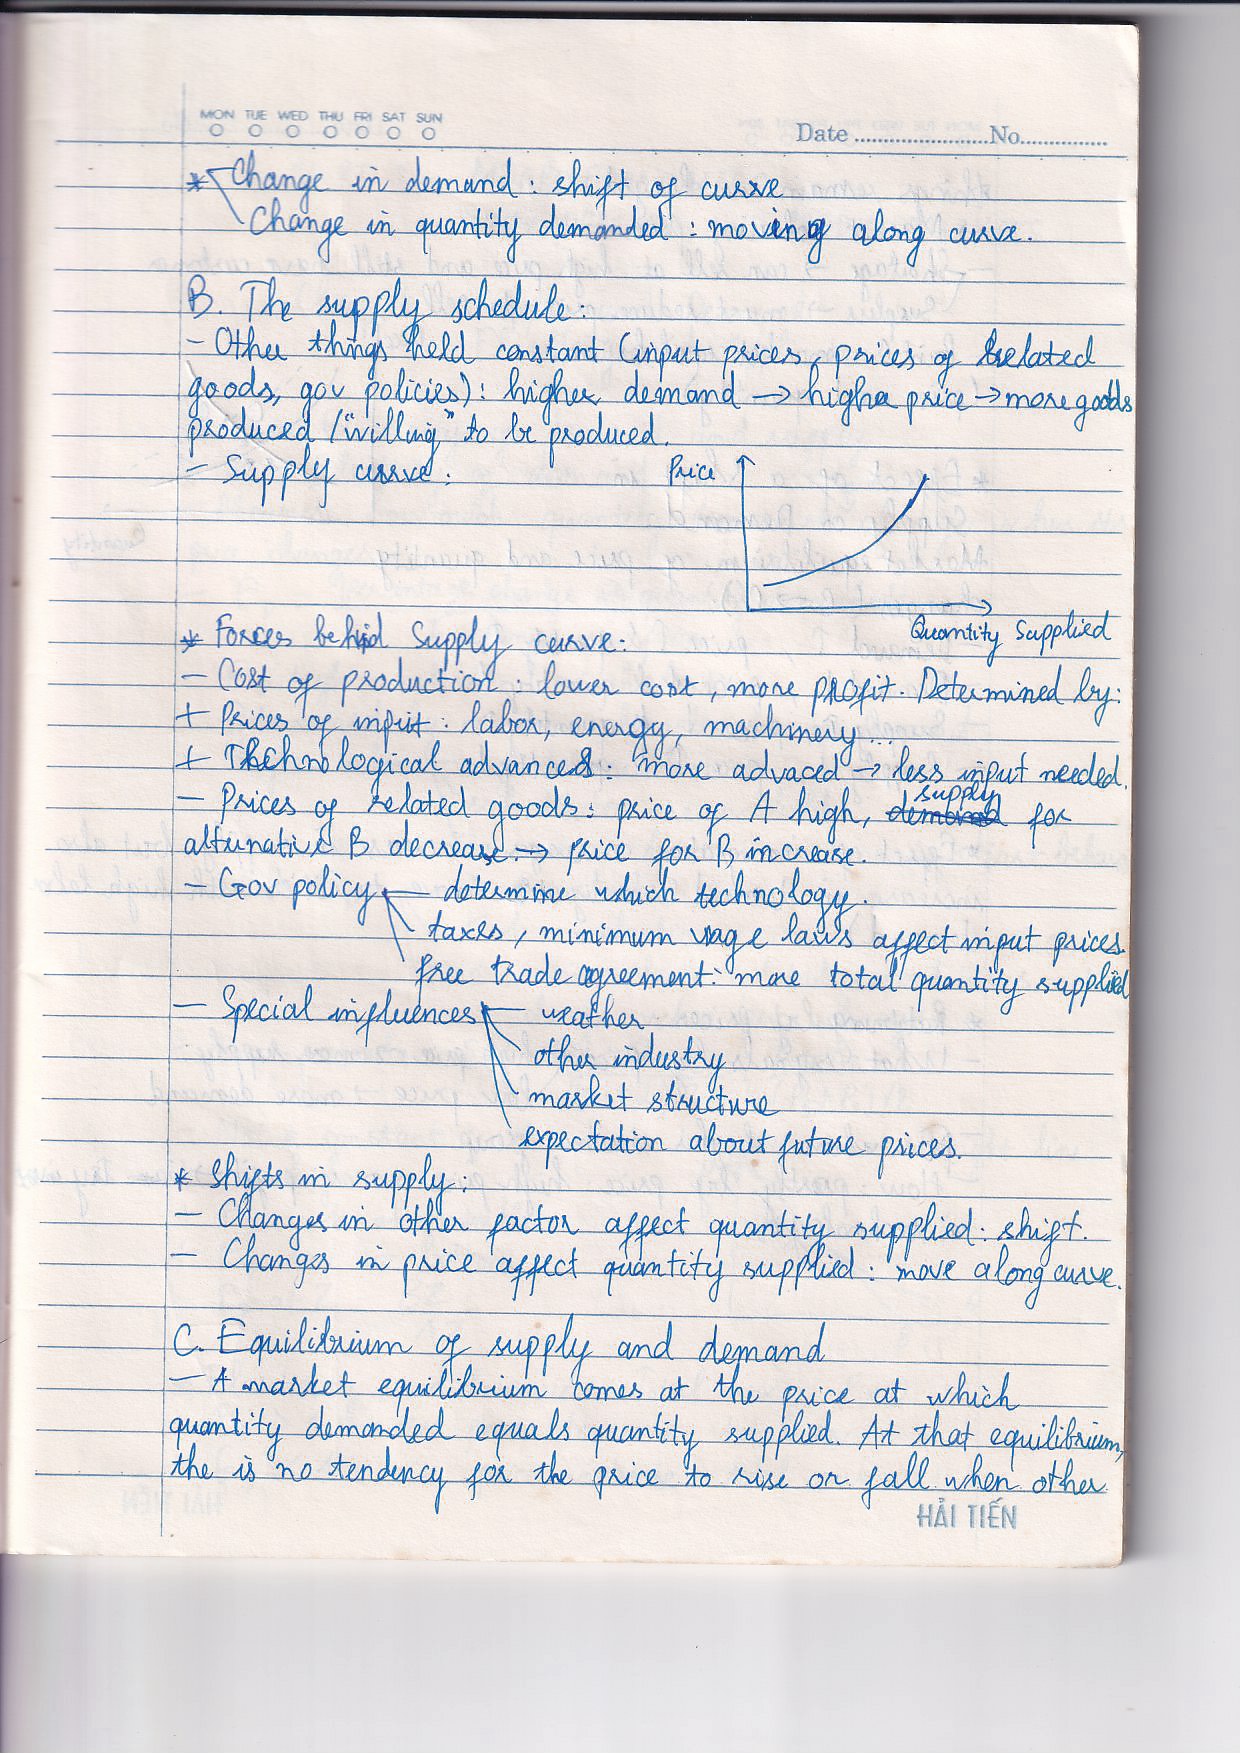 MON TUE WED THU FRI SAT SUN
Date ........................No...............
* Change in demand : shift of curve
Change in quantity demanded : moving along curve.
B. The supply schedule :
- Other things held constant (input prices, prices of related
goods, gov policies) : higher demand → higher price → more goods
produced / "willing" to be produced.
- Supply curve :
Price
Quantity Supplied
* Forces behind Supply curve :
- Cost of production : lower cost, more profit. Determined by :
+ Prices of input : labor, energy, machinery ...
+ Technological advances : more advaced → less input needed.
supply
- Prices of related goods : price of A high, demand for
alternative B decrease → price for B increase.
- Gov policy determine which technology.
taxes, minimum wage laws affect input prices.
free trade agreement : more total quantity supplied
- Special influences weather
other industry
market structure
expectation about future prices.
* Shifts in supply :
- Changes in other factor affect quantity supplied : shift.
- Changes in price affect quantity supplied : move along curve.
C. Equilibrium of supply and demand
- A market equilibrium comes at the price at which
quantity demanded equals quantity supplied. At that equilibrium,
the is no tendency for the price to rise or fall when other
HẢI TIẾN